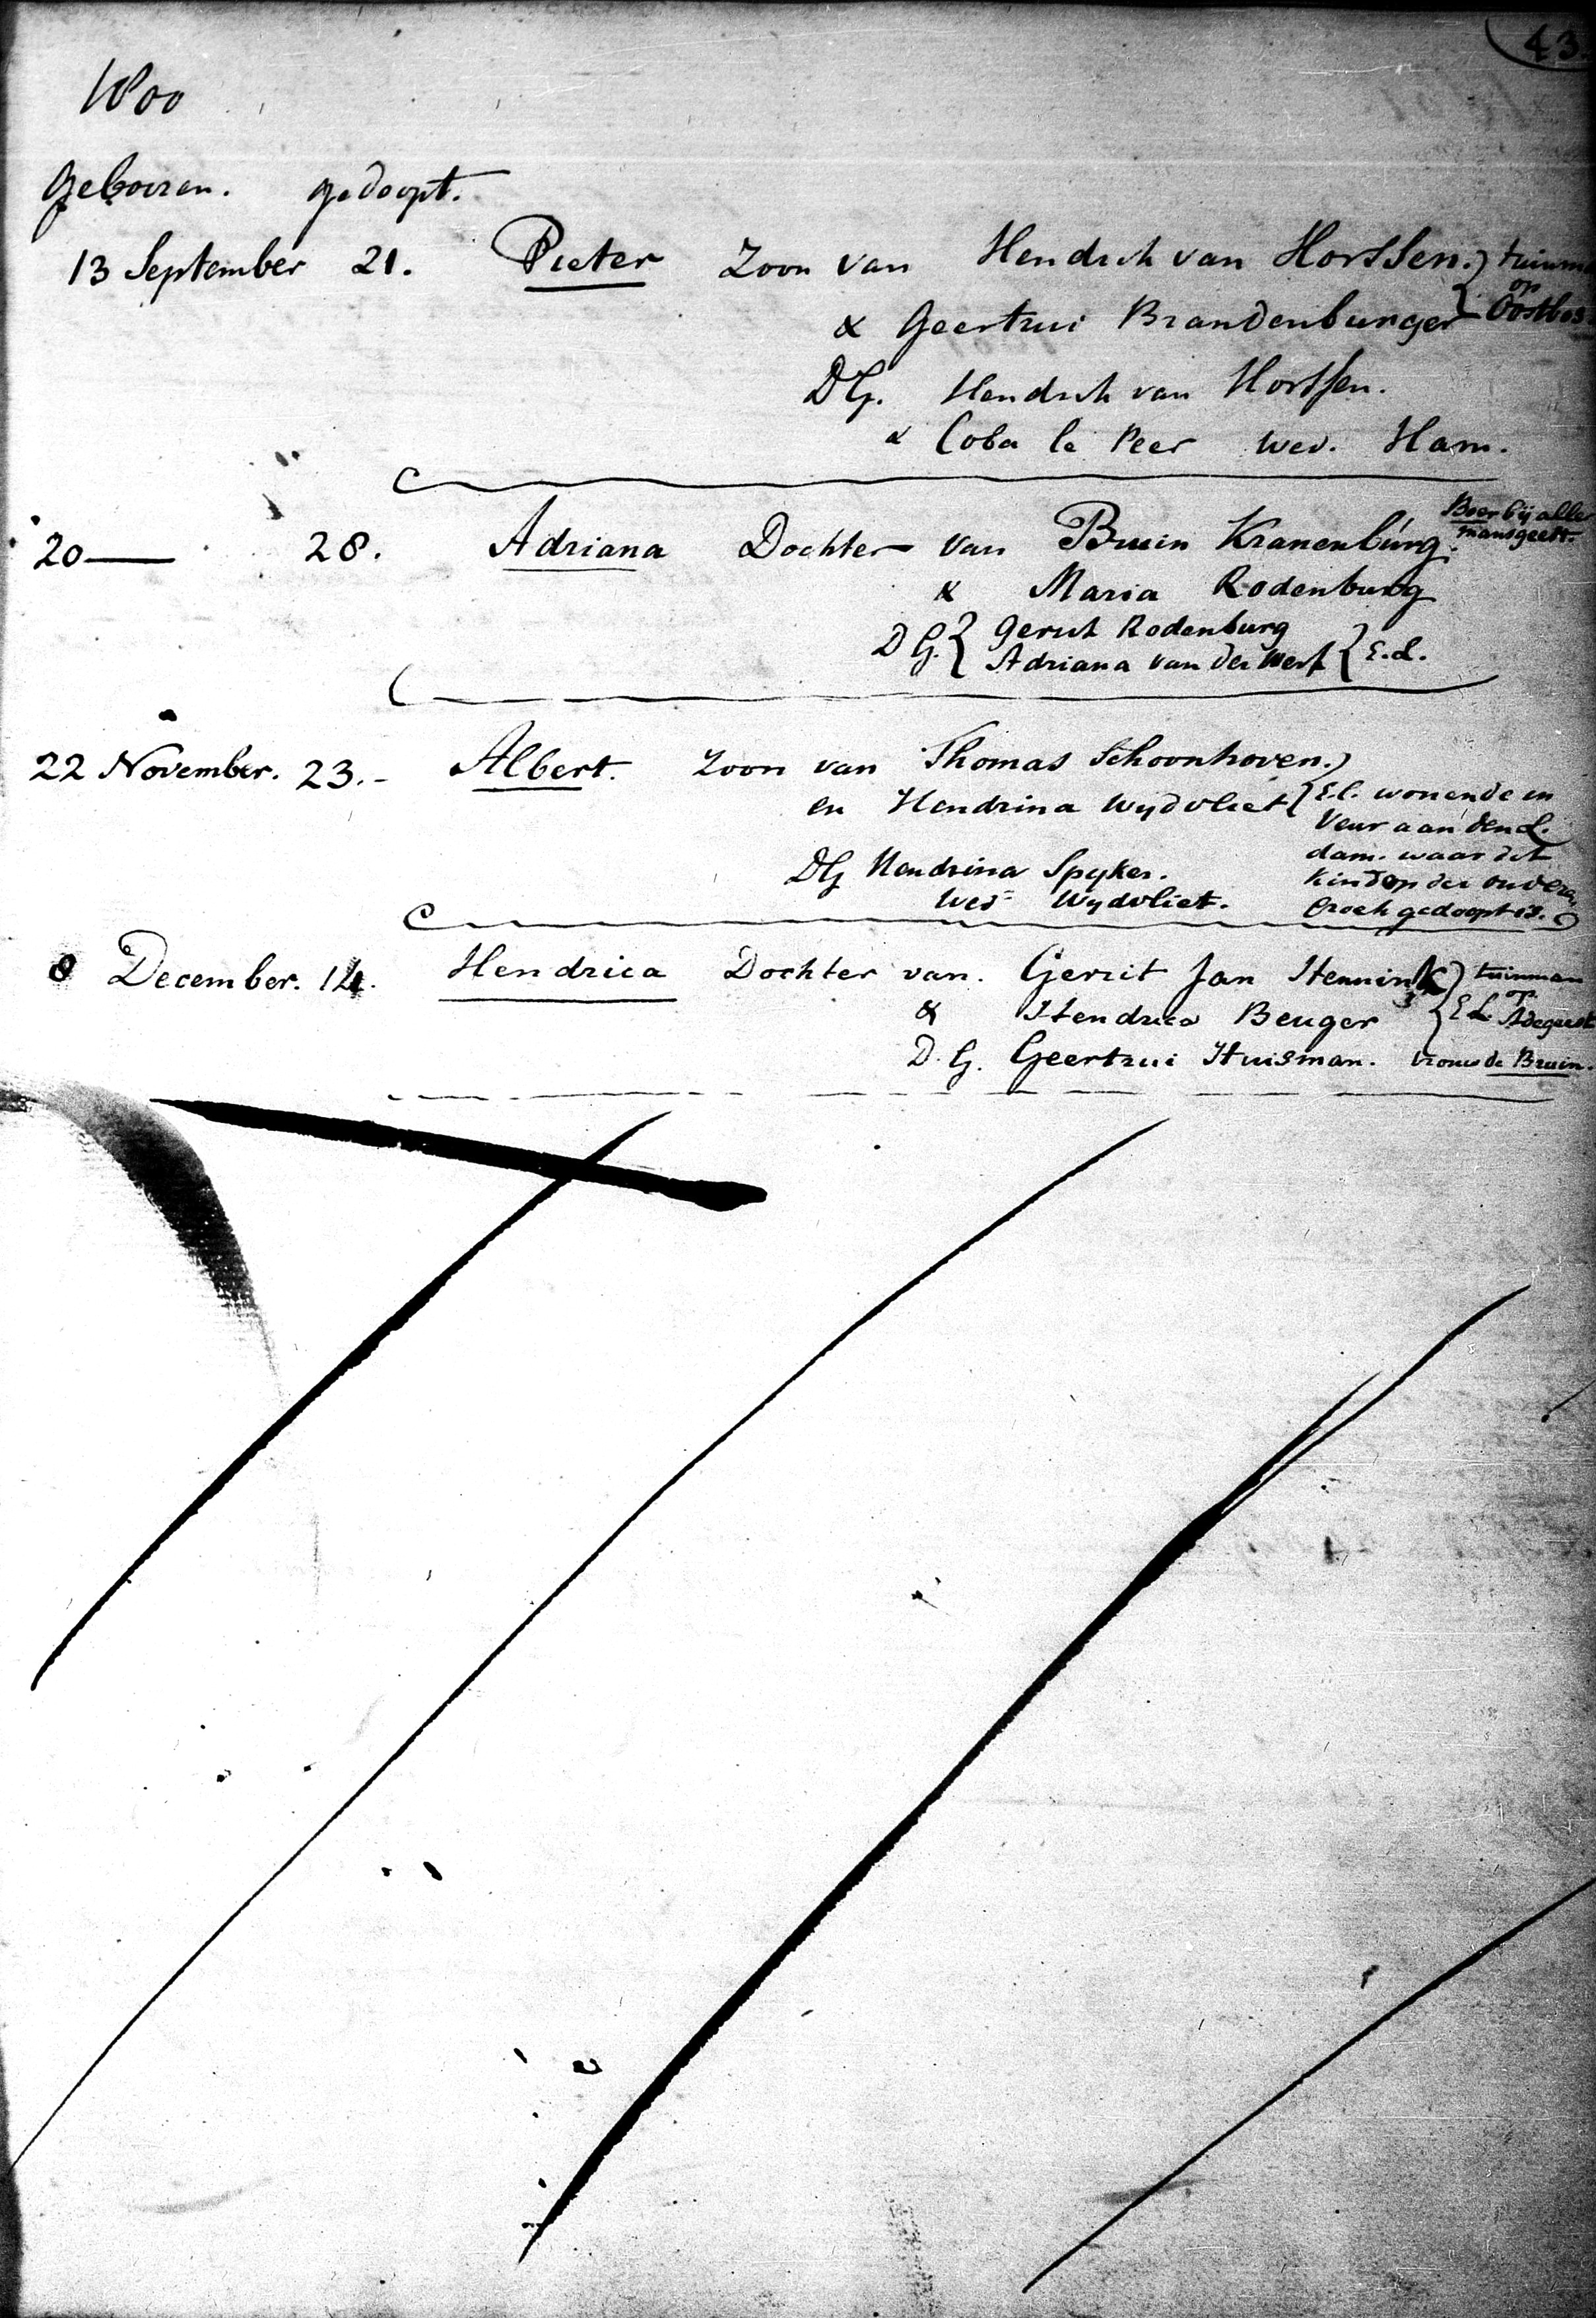 43
1800
Gebooren. gedoopt.
13 September 21. Pieter Zoon van Hendrik van Horssen. tuinm
op
& Geertrui Brandenburger Oostbos
DG. Hendrik van Horssen.
& Coba la Peer wed. Ham.
20 — 28. Adriana Dochter van Bruin Kranenburg. Boer bij alle
mansgeest.
& Maria Rodenburg
DG. Gerrit Rodenburg
Adriana van der Werf E.L.
22 November. 23.- Albert. Zoon van Thomas Schoonhoven.
en Hendrina Wydvliet E.l. wonende in
Veur aan den L.
dam. waar dit
DG Hendrina Spyker. kind op der ouderen
Wed Wydvliet. gedoopt is.
8 December. 14. Hendrica Dochter van. Gerrit Jan Hennink tuinman
op
& Hendrica Beuger E L Adegeest
D. G. Geertrui Huisman. vrouw de Bruin.